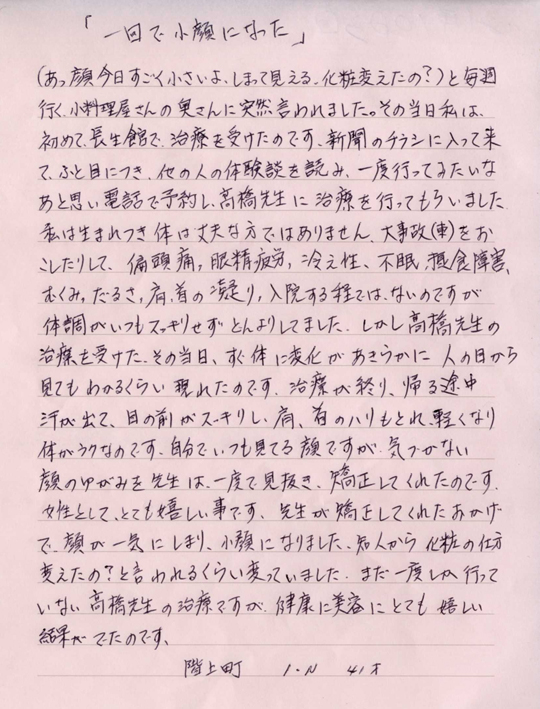 「一回で小顔になった」
(あっ顔今日すごく小さいよ、しまって見える、化粧変えたの?)と毎週
行く、小料理屋さんの奥さんに突然言われました。その当日私は、
初めて、長生館で、治療を受けたのです、新聞のチラシに入って来
て、ふと目につき、他の人の体験談を読み、一度行ってみたいな
あと思い電話で予約し、高橋先生に治療を行ってもらいました
私は生まれつき体は丈夫な方ではありません、大事故(車)をお
こしたりして、偏頭痛、眼精疲労、冷え性、不眠、摂食障害、
むくみ、だるさ、肩、首の凝り、入院する程では、ないのですが
体調がいつもスッキリせずどんよりしてました。しかし高橋先生の
治療を受けた、その当日、すぐ体に変化があきらかに人の目から
見てもわかるくらい現れたのです、治療が終り、帰る途中
汗が出て、目の前がスッキリし、肩、首のハリもとれ、軽くなり
体がラクなのです、自分でいつも見てる顔ですが、気づかない
顔のゆがみを先生は、一度で見抜き、矯正してくれたのです、
女性として、とても嬉しい事です、先生が矯正してくれたおかげ
で、顔が一気にしまり、小顔になりました、知人から化粧の仕方
変えたの?と言われるくらい変っていました、まだ一度しか行って
いない高橋先生の治療ですが、健康に美容にとても嬉しい
結果がでたのです、
階上町 I・N 41才